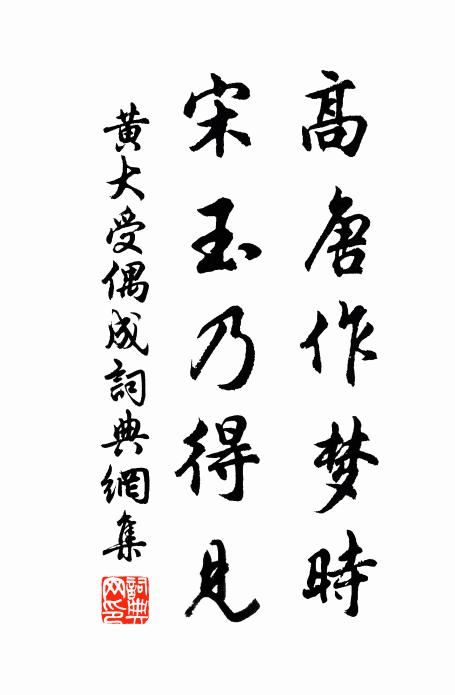 高唐作梦時
宋玉乃得見
黄大受偶成詞典網集
詞典網印